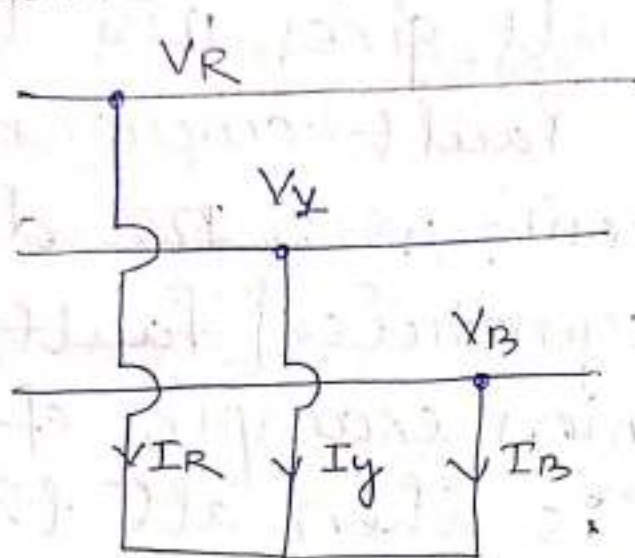 VR
Vy
VB
IR Iy IB